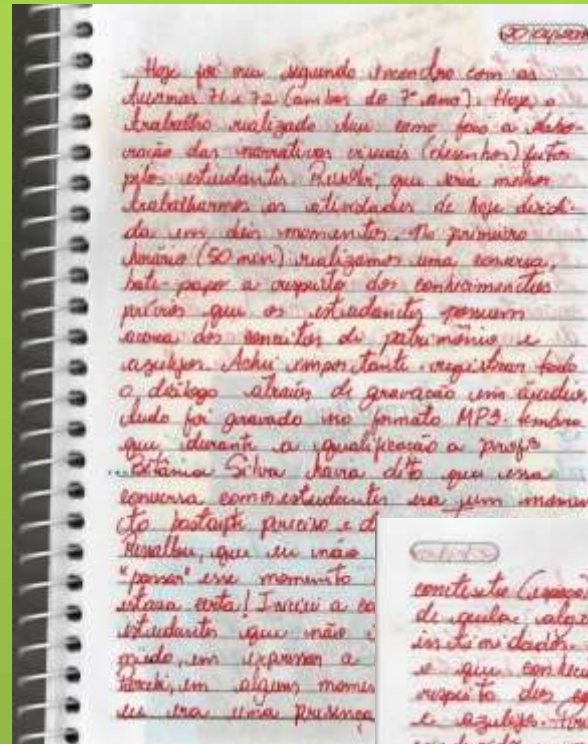 20/04/2018
Hoje foi meu segundo encontro com as
turmas 71 e 72 (ambas do 7º ano). Hoje o
trabalho realizado teve como foco a elabo-
ração das narrativas visuais (desenhos) feitos
pelos estudantes. que seria melhor
trabalharmos as atividades de hoje dividi-
da em dois momentos. No primeiro
horário (50 min) realizamos uma conversa,
bate-papo a respeito dos conhecimentos
prévios que os estudantes possuem
acerca dos conceitos de patrimônio e
azulejos. Achei importante registrar todo
o diálogo através de gravação em áudio,
tudo foi gravado no formato MP3. lembro
que durante a qualificação a profª
Betânia Silva havia dito que essa
conversa com os estudantes era um momen
to bastante e d
que eu não
"passar" esse momento
estava certa! Iniciei a co
estudantes que não
medo, em expressar a
Percebi, em alguns momen
eu era uma presença
contexto (espaço
de aula, alg
intimidados.
e que conhec
respeito dos
e azulejos.